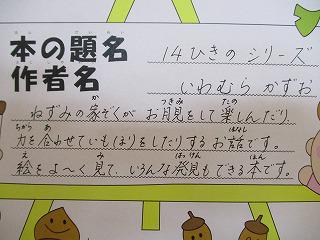 本の題名 14ひきのシリーズ
作者名 いわむら かずお
ねずみの家ぞくがお月見をして楽しんだり
力を合わせていもほりをしたりするお話です。
絵をよ～く見て、いろんな発見もできる本です。